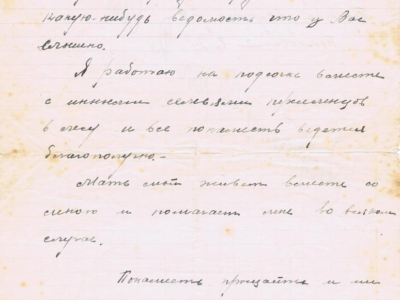 какую-нибудь ведомость что у Вас
слышно.
Я работаю на подсочке вместе
с
в лесу и все ведется
благополучно.-
Мать живет вместе со
мною и помогает мне во всяком
случае.
прощайте и